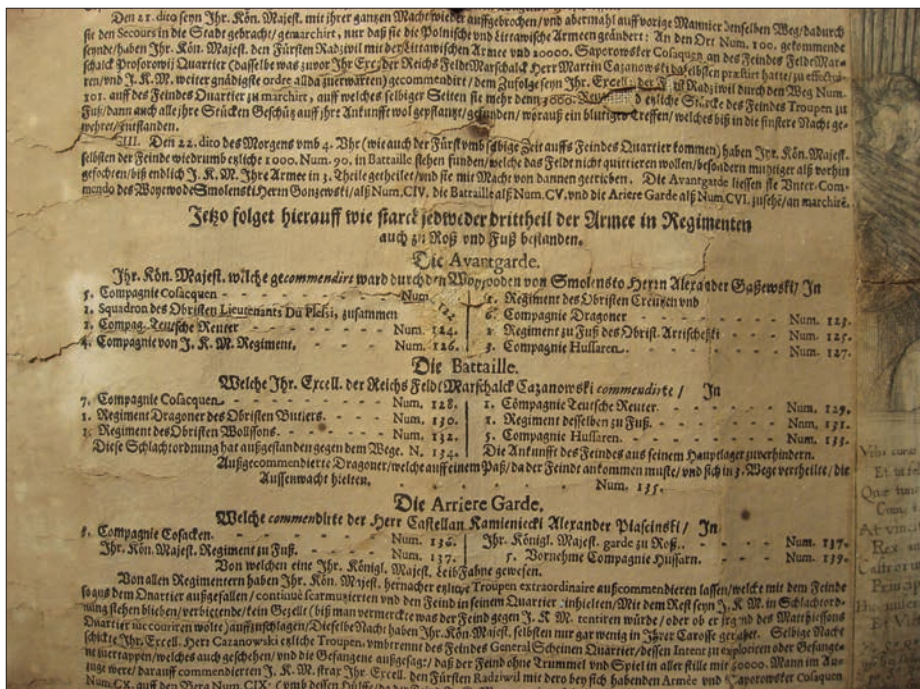 Den 21. dito seyn Ihr. Kön. Majest. mit jhrer gantzen Macht wieder auffgebrochen / und abermahl auff vorige Mannier denselben Weg / dadurch
sie den Secours in die Stadt gebracht / gemarchirt, nur daß sie die Polnische vnd Littawische Armeen geändert: An den Ort Num. 100. gekommende
seynde / haben Ihr. Kön. Majest. den Fürsten Radzivil mit der Littawischen Armee vnd 20000. Saporowsker Cosaquen an des Feindes FeldtMar-
schalck Prosorowij Quartier (dasselbe was zuvor Ihr Exc. der Reichs FeldtMarschalck Herr Martin Cazanowski daselbsten præstirt hatte / zu effectui-
ren / vnd J. K. M. weiter gnädigste ordre allda zuerwarten) gecommendirt / dem Zufolge seyn Ihr. Excell. der Fürst Radziwil durch den Weg Num.
101. auff des Feindes Quartier zu marchirt, auff welches selbiger Seiten sie mehr denn 3000. etzliche Stärcke des Feindes Troupen zu
Fuß / dann auch alle jhre Stücken Geschütz auff jhre Ankunfft wol gepflantzt / gefunden / worauß ein blutiges Treffen / welches biß in die finstere Nacht ge-
wehret / entstanden.
III. Den 22. dito des Morgens vmb 4. Vhr (wie auch der Fürst vmb selbige Zeit auffs Feindes Quartier kommen) haben Ihr. Kön. Majest.
selbsten der Feinde wiedrumb etzliche 1000. Num. 90. in Battaille stehen funden / welche das Feldt nicht quittieren wollen / besondern muthiger alß vorhin
gefochten / biß endlich J. K. M. Ihre Armee in 3. Theile getheilet / vnd sie mit Macht von dannen getrieben. Die Avantgarde liessen sie Vnter Com-
mendo des Woywode Smolenski Herrn Gonzewski / alß Num. CIV. die Battaille alß Num. CV. vnd die Ariere Garde alß Num. CVI. zusehē / an marchirē.
Jetzo folget hierauff wie starck jedweder dritttheil der Armee in Regimenten
auch zu Roß vnd Fuß bestanden.
Die Avantgarde.
Ihr. Kön. Majest. welche gecommendirt ward durch den Woywoden von Smolensko Herrn Alexander Gaßewski / In
5. Compagnie Cosacquen - - - Num.
1. Squadron des Obristen Lieutenants Du Plessi, zusammen 122.
1. Compag. Teutsche Reuter - - - Num. 124.
4. Compagnie von J. K. M. Regiment. - - - Num. 126.
1. Regiment des Obristen Creutzen vnd
6. Compagnie Dragoner - - - Num. 123.
1. Regiment zu Fuß des Obrist. Artischeßki - - - Num. 125.
3. Compagnie Hussaren. - - - Num. 127.
Die Battaille.
Welche Ihr. Excell. der Reichs Feldt Marschalck Cazanowski commendirte / In
7. Compagnie Cosacquen - - - Num. 128.
1. Regiment Dragoner des Obristen Butlers. - - - Num. 130.
1. Regiment des Obristen Wolissons. - - - Num. 132.
Diese Schlachtordnung hat außgestanden gegen dem Wege. N. 134.
1. Compagnie Teutsche Reuter. - - - Num. 129.
1. Regiment desselben zu Fuß. - - - Num. 131.
5. Compagnie Hussaren. - - - Num. 133.
Die Ankunfft des Feindes aus seinem Hauptlager zuverhindern.
Außgecommendierte Dragoner / welche auff einem Paß / da der Feindt ankommen muste / vnd sich in 3. Wege vertheilte / die
Aussenwacht hielten. - - - Num. 135.
Die Arriere Garde,
Welche commendirte der Herr Castellan Kamieniecki Alexander Piascinski / In
8. Compagnie Cosacken. - - - Num. 136.
Ihr. Kön. Majest. Regiment zu Fuß. - - - Num. 137.
Ihr. Königl. Majest. garde zu Roß. - - - Num. 137.
5. Vornehme Compagnie Hussarn. - - - Num. 139.
Von welchen eine Ihr. Königl. Majest. Leib Fahne gewesen.
Von allen Regimentern haben Ihr. Kön. Majest. hernacher etzliche Troupen extraordinaire außcommendieren lassen / welche mit dem Feinde
so aus dem Quartier außgefallen / continué scarmutzierten vnd den Feind in seinem Quartier inhielten / Mit dem Rest seyn J. K. M. in Schlachtord-
nung stehen blieben / verbietende / kein Gezelt (biß man vermerckte was der Feind gegen J. K. M. tentiren würde / oder ob er irgnd des Matthissons
Quartier succouriren wolte) auffzuschlagen / Dieselbe Nacht haben Ihr. Kön. Majest. selbsten nur gar wenig in Ihrer Carosse geruhet. Selbige Nacht
schickte Ihr. Excell. Herr Cazanowski etzliche Troupen, vmbtrennt des Feindes General Scheinen Quartier / dessen Intent zu exploriren oder Gefange-
ne zuertappen / welches auch geschehen / vnd die Gefangene außgesagt / daß der Feind ohne Trummel vnd Spiel in aller stille mit 50000. Mann im An-
zuge were / darauff commendierten J. K. M. strax Ihr. Excell. den Fürsten Radziwil mit dero bey sich habenden Armée vnd Saporowsker Cosaquen
Num. CX. auff den Berg Num. CIX.
Et
Com
Rex
Princip
Et Vi